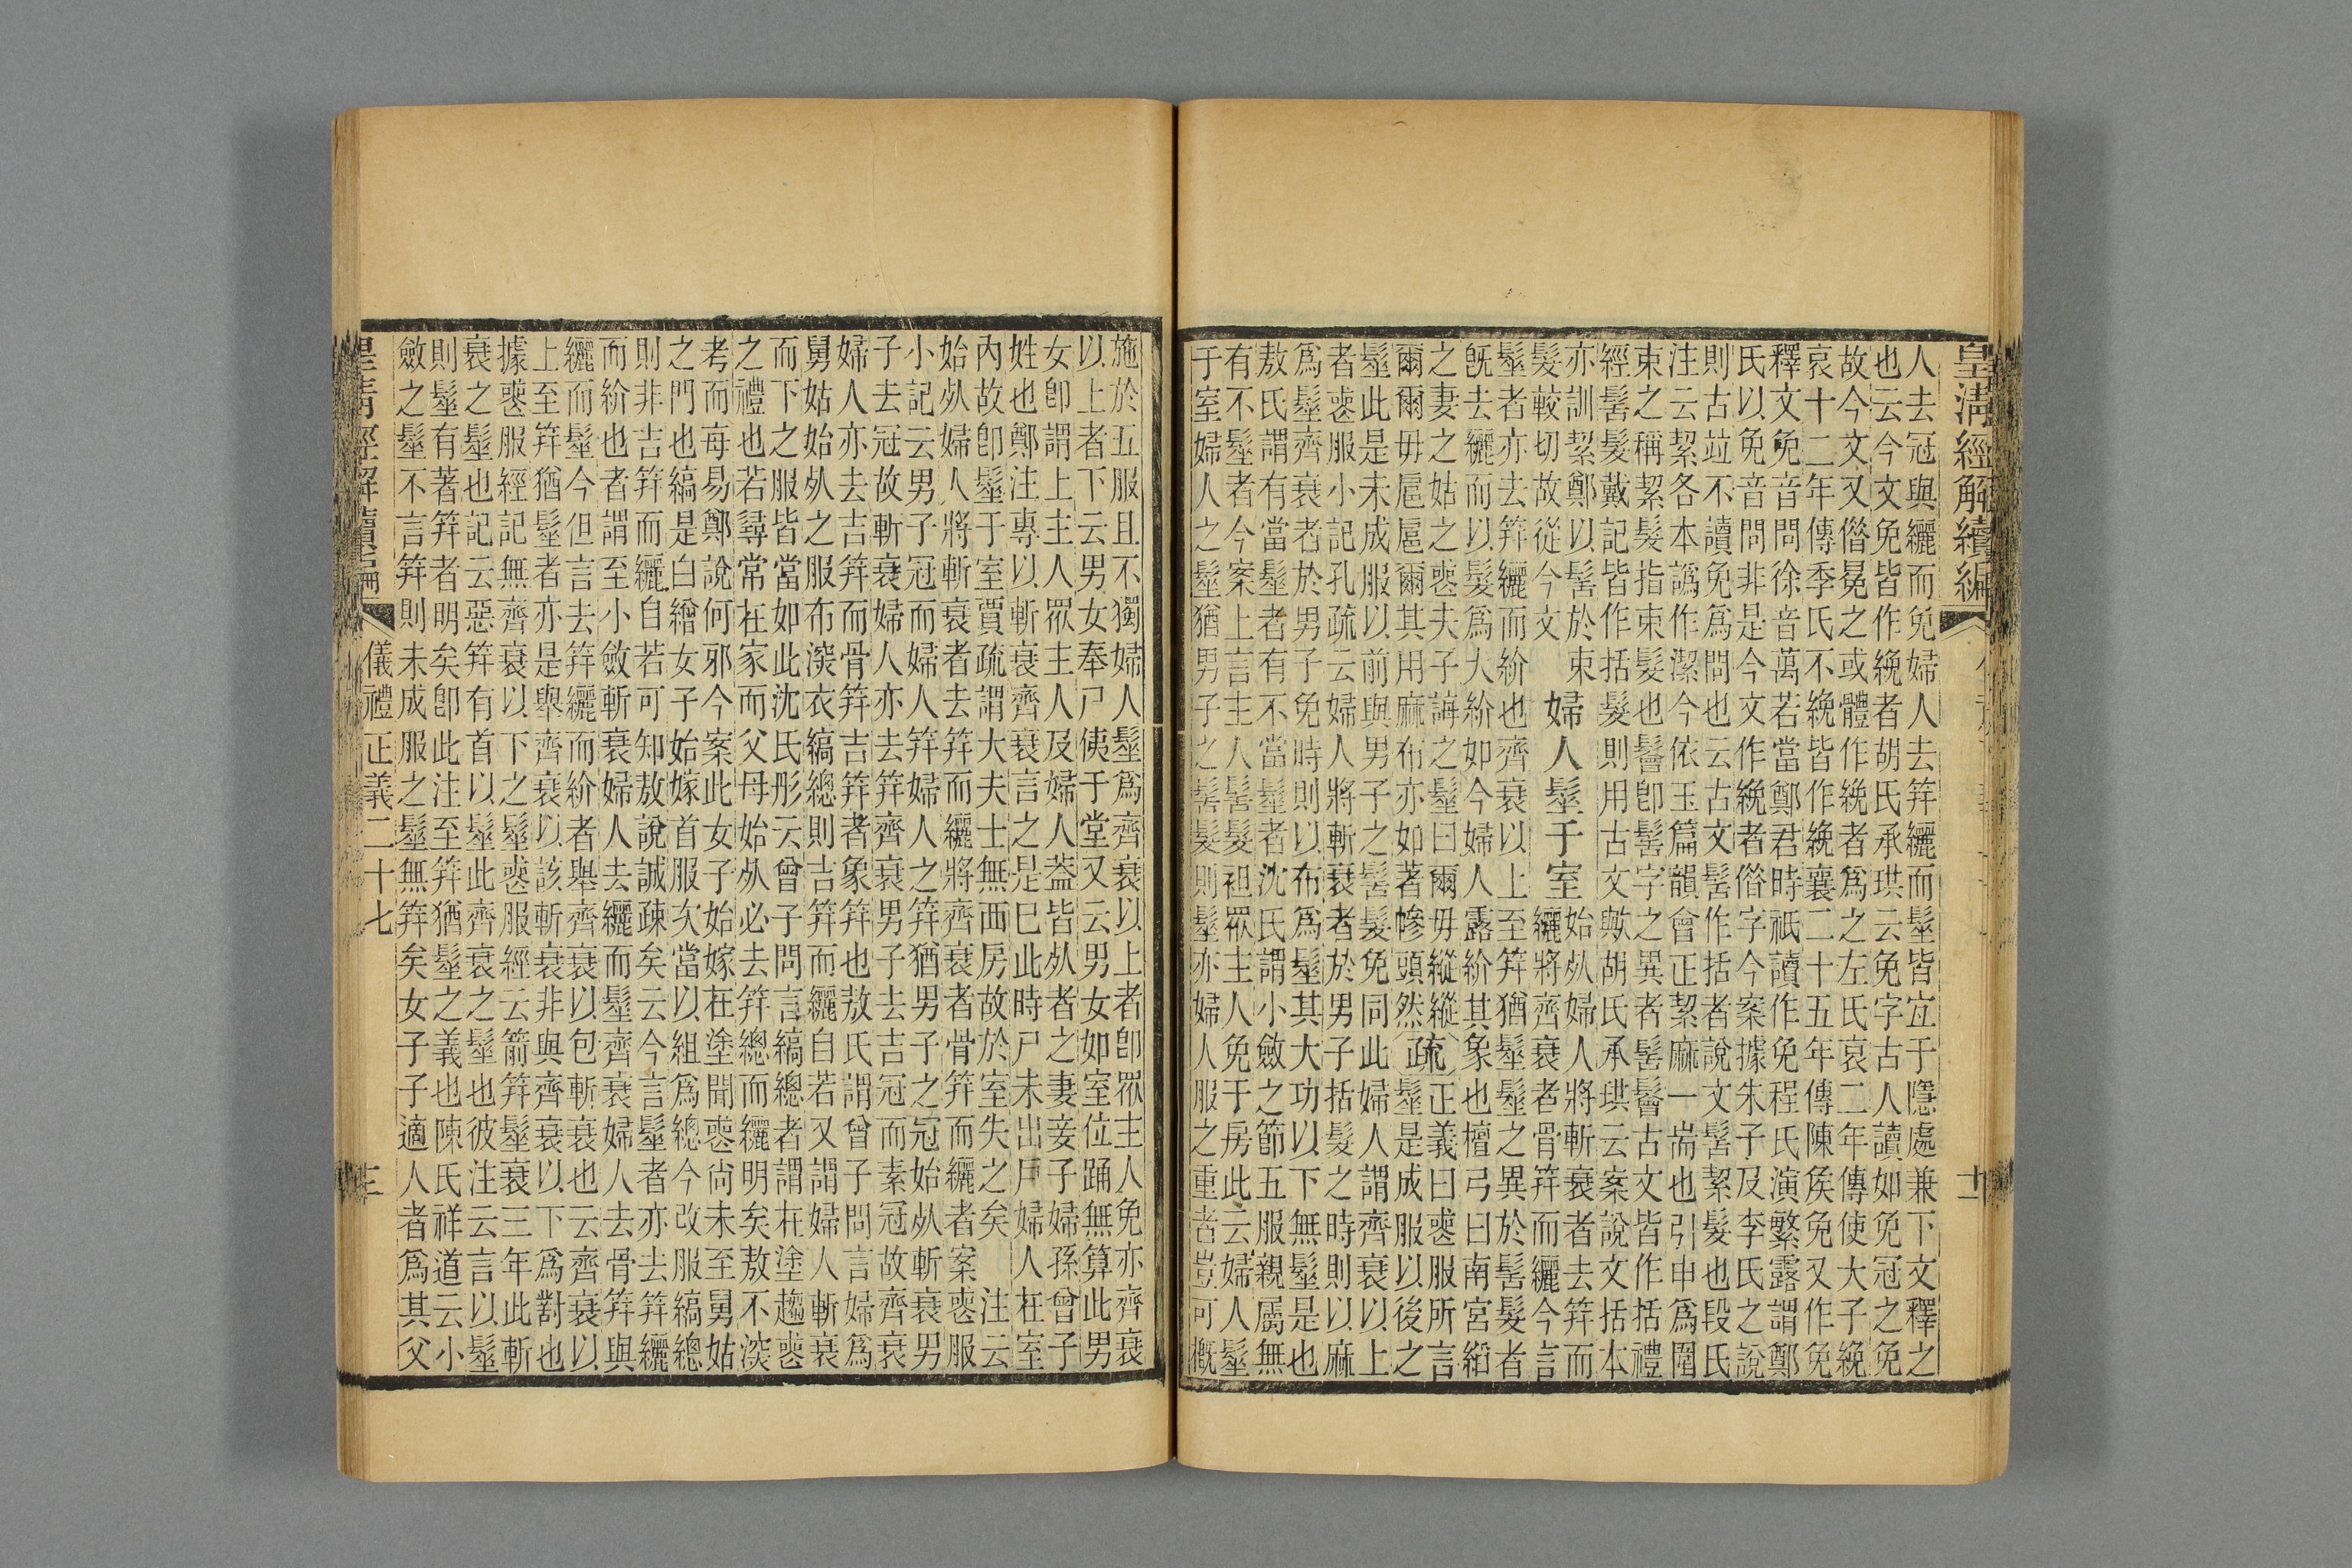 皇清經解續編
人去冠與纚而免婦人去笄纚而髽皆宐于隱處兼下文釋之
也云今文免皆作絻者胡氏承珙云免字古人讀如免冠之免
故今文又偺冕之或體作絻者爲之左氏哀二年傳使大子絻
哀十二年傳季氏不絻皆作絻襄二十五年傳陳矦免又作免
釋文免音問徐音萬若當鄭君時祇讀作免程氏演繁露謂鄭
氏以免音問非是今文作絻者偺字今案據朱子及李氏之說
則古竝不讀免爲問也云古文髺作括者說文髺絜髮也段氏
注云絜各本譌作潔今依玉篇韻會正絜麻一耑也引申爲圍
束之稱絜髮指束髮也鬠卽髺字之異者髺鬠古文皆作括禮
經髺髮戴記皆作括髮則用古文歟胡氏承珙云案說文括本
亦訓絜鄭以髺於束
髮較切故從今文
婦人髽于室
始𣦸婦人將斬衰者去笄而
纚將齊衰者骨笄而纚今言
髽者亦去笄纚而紒也齊衰以上至笄猶髽髽之異於髺髮者
旣去纚而以髮爲大紒如今婦人露紒其象也檀弓曰南宮縚
之妻之姑之䘮夫子誨之髽曰爾毋縱縱
爾爾毋扈扈爾其用麻布亦如著幓頭然
疏
正義曰䘮服所言
髽是成服以後之
髽此是未成服以前與男子之髺髮免同此婦人謂齊衰以上
者䘮服小記孔疏云婦人將斬衰者於男子括髮之時則以麻
爲髽齊衰者於男子免時則以布爲髽其大功以下無髽是也
敖氏謂有當髽者有不當髽者沈氏謂小斂之節五服親屬無
有不髽者今案上言主人髺髮袒眾主人免于房此云婦人髽
于室婦人之髽猶男子之髺髮則髽亦婦人服之重者豈可槪
十一
施於五服且不獨婦人髽爲齊衰以上者卽眾主人免亦齊衰
以上者下云男女奉尸侇于堂又云男女如室位踊無算此男
女卽謂上主人眾主人及婦人葢皆𣦸者之妻妾子婦孫曾子
姓也鄭注專以斬衰齊衰言之是巳此時尸未出戶婦人在室
內故卽髽于室賈疏謂大夫士無西房故於室失之矣 注云
始𣦸婦人將斬衰者去笄而纚將齊衰者骨笄而纚者案䘮服
小記云男子冠而婦人笄婦人之笄猶男子之冠始𣦸斬衰男
子去冠故斬衰婦人亦去笄齊衰男子去吉冠而素冠故齊衰
婦人亦去吉笄而骨笄吉笄者象笄也敖氏謂曾子問言婦爲
舅姑始𣦸之服布深衣縞總則吉笄而纚自若又謂婦人斬衰
而下之服皆當如此沈氏彤云曾子問言縞總者謂在塗趨䘮
之禮也若尋常在家而父母始𣦸必去笄總而纚明矣敖不深
考而每易鄭說何邪今案此女子始嫁在塗聞䘮尙未至舅姑
之門也縞是白繒女子始嫁首服次當以組爲總今改服縞總
則非吉笄而纚自若可知敖說誠疎矣云今言髽者亦去笄纚
而紒也者謂至小斂斬衰婦人去纚而髽齊衰婦人去骨笄與
纚而髽今但言去笄纚而紒者舉齊衰以包斬衰也云齊衰以
上至笄猶髽者亦是舉齊衰以該斬衰非與齊衰以下爲對也
據䘮服經記無齊衰以下之髽䘮服經云箭笄髽衰三年此斬
衰之髽也記云惡笄有首以髽此齊衰之髽也彼注云言以髽
則髽有著笄者明矣卽此注至笄猶髽之義也陳氏祥道云小
斂之髽不言笄則未成服之髽無笄矣女子子適人者爲其父
皇清經解續編
儀禮正義二十七